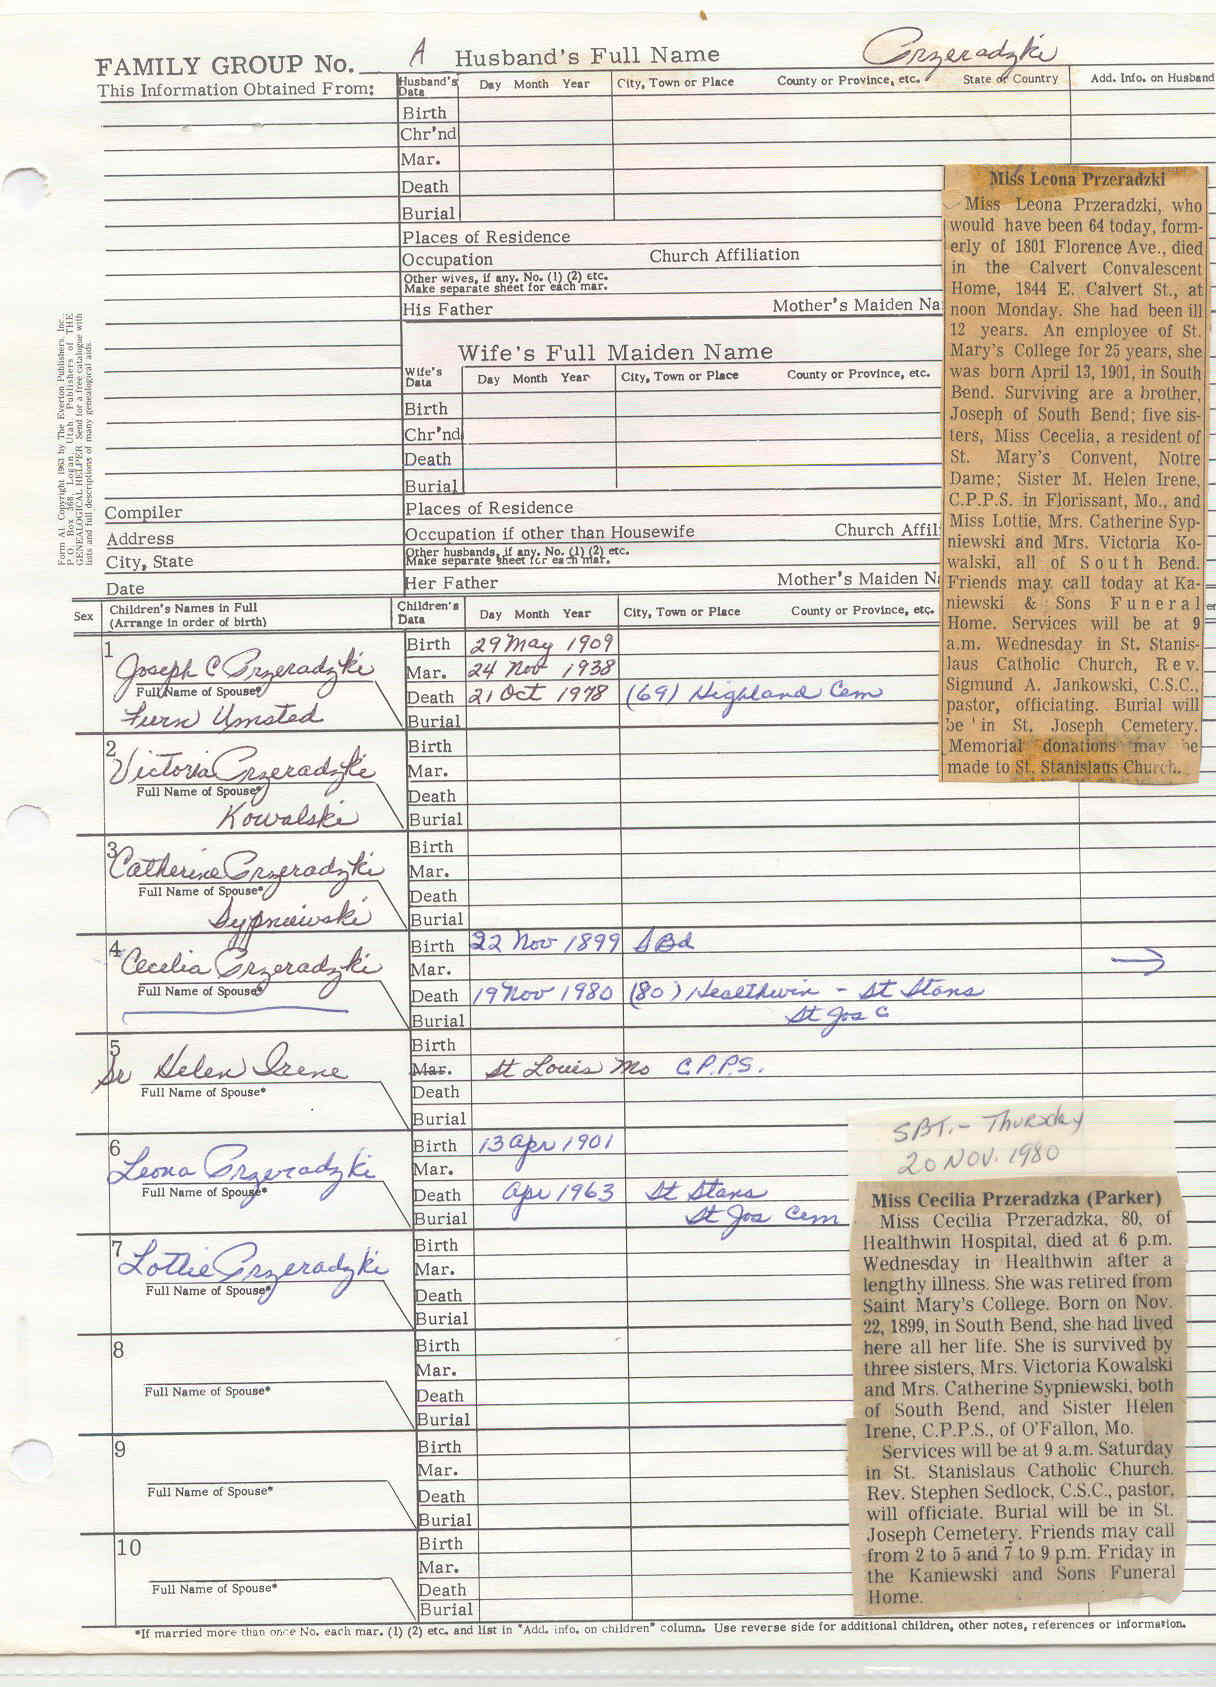 FAMILY GROUP No. A Husband's Full Name Przeradzki
This Information Obtained From:
Husband's Data Day Month Year City, Town or Place County or Province, etc. State or Country Add. Info. on Husband
Birth
Chr'nd
Mar.
Death
Burial
Places of Residence
Occupation Church Affiliation
Other wives, if any. No. (1) (2) etc.
Make separate sheet for each mar.
His Father Mother's Maiden Na
Wife's Full Maiden Name
Wife's Data Day Month Year City, Town or Place County or Province, etc.
Birth
Chr'nd
Death
Burial
Compiler Places of Residence
Address Occupation if other than Housewife Church Affil
City, State Other husbands, if any. No. (1) (2) etc.
Make separate sheet for each mar.
Date Her Father Mother's Maiden N
Form A1. Copyright 1963 by The Everton Publishers, Inc.,
P. O. Box 368, Logan, Utah. Publishers of THE
GENEALOGICAL HELPER. Send for a free catalogue with
lists and full descriptions of many genealogical aids.
Miss Leona Przeradzki
Miss Leona Przeradzki, who
would have been 64 today, form-
erly of 1801 Florence Ave., died
in the Calvert Convalescent
Home, 1844 E. Calvert St., at
noon Monday. She had been ill
12 years. An employee of St.
Mary's College for 25 years, she
was born April 13, 1901, in South
Bend. Surviving are a brother,
Joseph of South Bend; five sis-
ters, Miss Cecelia, a resident of
St. Mary's Convent, Notre
Dame; Sister M. Helen Irene,
C.P.P.S. in Florissant, Mo., and
Miss Lottie, Mrs. Catherine Syp-
niewski and Mrs. Victoria Ko-
walski, all of South Bend.
Friends may call today at Ka-
niewski & Sons Funeral
Home. Services will be at 9
a.m. Wednesday in St. Stanis-
laus Catholic Church, Rev.
Sigmund A. Jankowski, C.S.C.,
pastor, officiating. Burial will
be in St. Joseph Cemetery.
Memorial donations may be
made to St. Stanislaus Church.
Sex Children's Names in Full
(Arrange in order of birth)
Children's Data Day Month Year City, Town or Place County or Province, etc.
1 Joseph C Przeradzki
Full Name of Spouse*
Fern Umsted
Birth 29 May 1909
Mar. 24 Nov 1938
Death 21 Oct 1978 (69) Highland Cem
Burial
2 Victoria Przeradzki
Full Name of Spouse*
Kowalski
Birth
Mar.
Death
Burial
3 Catherine Przeradzki
Full Name of Spouse*
Sypniewski
Birth
Mar.
Death
Burial
4 Cecelia Przeradzki
Full Name of Spouse*
Birth 22 Nov 1899 S Bd
Mar.
Death 19 Nov 1980 (80) Healthwin - St Stans
Burial St Jos C
5 Sr Helen Irene
Full Name of Spouse*
Birth
Mar. St Louis Mo C.P.P.S.
Death
Burial
6 Leona Przeradzki
Full Name of Spouse*
Birth 13 Apr 1901
Mar.
Death Apr 1963 St Stans
Burial St Jos Cem
7 Lottie Przeradzki
Full Name of Spouse*
Birth
Mar.
Death
Burial
8
Full Name of Spouse*
Birth
Mar.
Death
Burial
9
Full Name of Spouse*
Birth
Mar.
Death
Burial
10
Full Name of Spouse*
Birth
Mar.
Death
Burial
SBT. - Thursday
20 NOV. 1980
Miss Cecilia Przeradzka (Parker)
Miss Cecilia Przeradzka, 80, of
Healthwin Hospital, died at 6 p.m.
Wednesday in Healthwin after a
lengthy illness. She was retired from
Saint Mary's College. Born on Nov.
22, 1899, in South Bend, she had lived
here all her life. She is survived by
three sisters, Mrs. Victoria Kowalski
and Mrs. Catherine Sypniewski, both
of South Bend, and Sister Helen
Irene, C.P.P.S., of O'Fallon, Mo.
Services will be at 9 a.m. Saturday
in St. Stanislaus Catholic Church.
Rev. Stephen Sedlock, C.S.C., pastor,
will officiate. Burial will be in St.
Joseph Cemetery. Friends may call
from 2 to 5 and 7 to 9 p.m. Friday in
the Kaniewski and Sons Funeral
Home.
*If married more than once No. each mar. (1) (2) etc. and list in "Add. info. on children" column. Use reverse side for additional children, other notes, references or information.